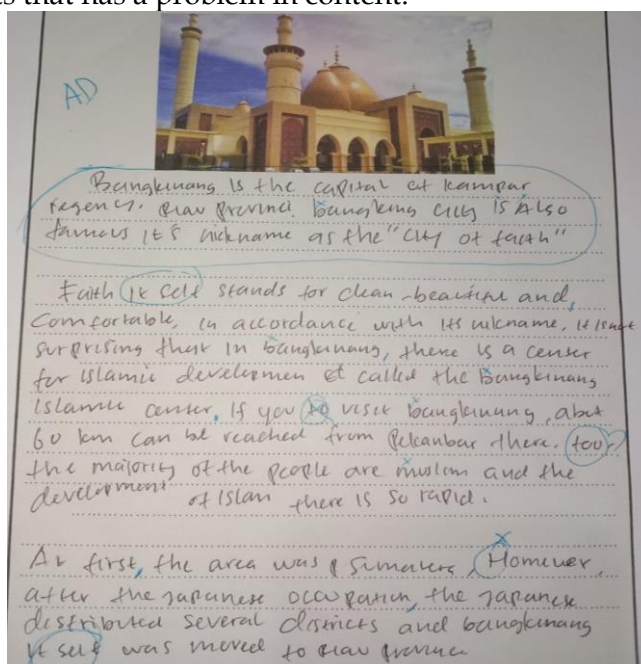 s that has a problem in content.
AD
Bangkinang is the capital of kampar
regency. Riau Provinci. bangking city is Also
famous it's nickname as the "city of faith"
Faith it self stands for clean-beautiful and,
Comfortable, in accordance with its nickname, it is not
surprising that in bangkinang, there is a center
for islamic developmen et called the Bangkinang
islamic center. If you to visit bangkinang, abut
60 km can be reached from Pekanbar there. too
the majority of the people are muslom and the
development of islan there is so rapid.
At first, the area was Sumatera, However,
after the Japanese occupation, the Japanese
distributed several districts and bangkinang
it self was moved to Riau